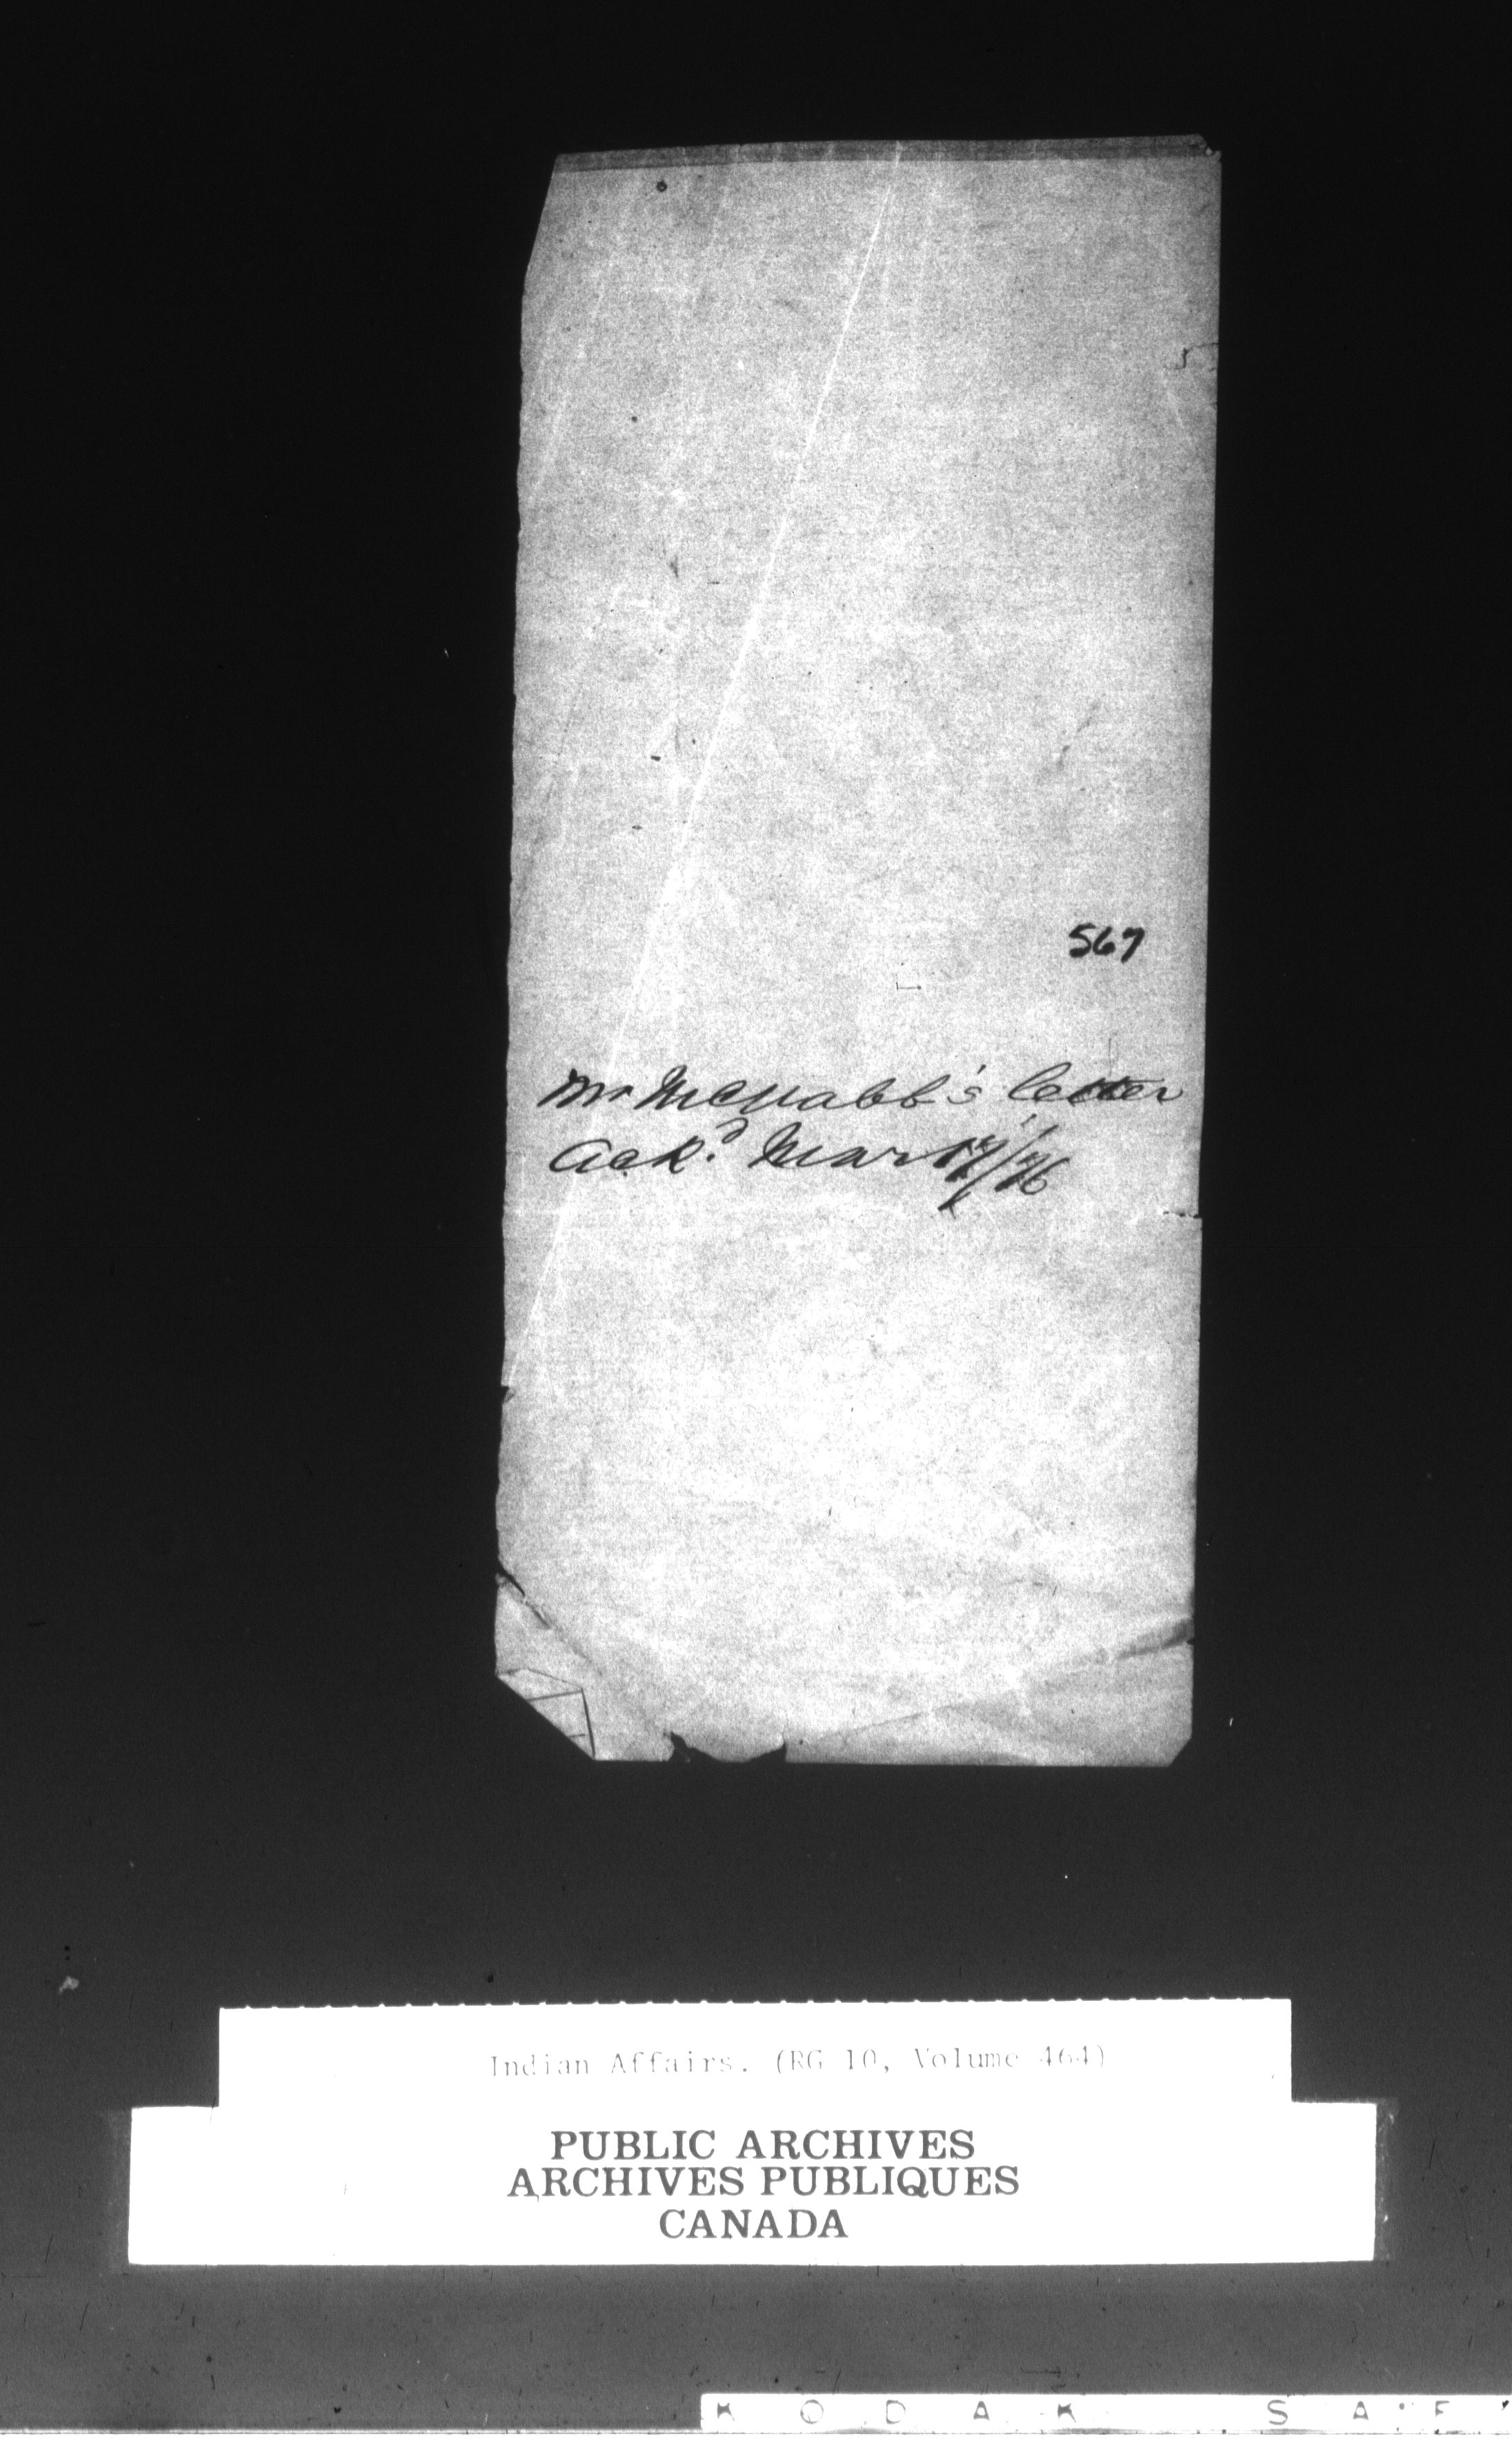 567
Mr McNabb's letter
Ackd. Mar 17/76
Indian Affairs. (RG 10, Volume 464)
PUBLIC ARCHIVES
ARCHIVES PUBLIQUES
CANADA
K O D A K S A F